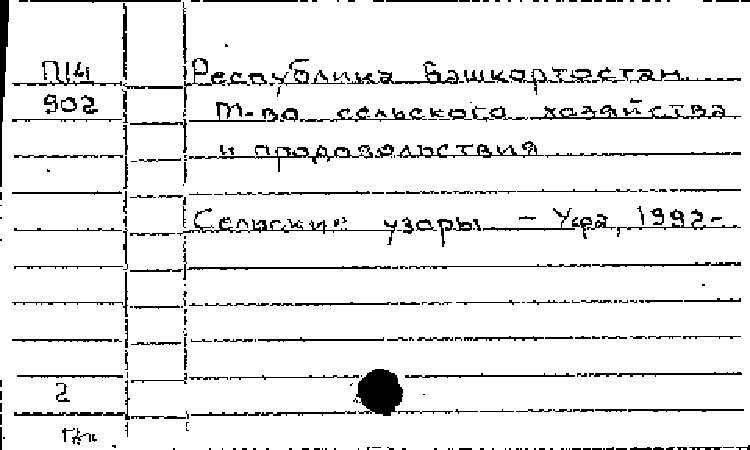 П14
902
Республика Башкортостан.
М-во сельского хозяйства
и продовольствия
Сельские узоры. – Уфа, 1992-
2